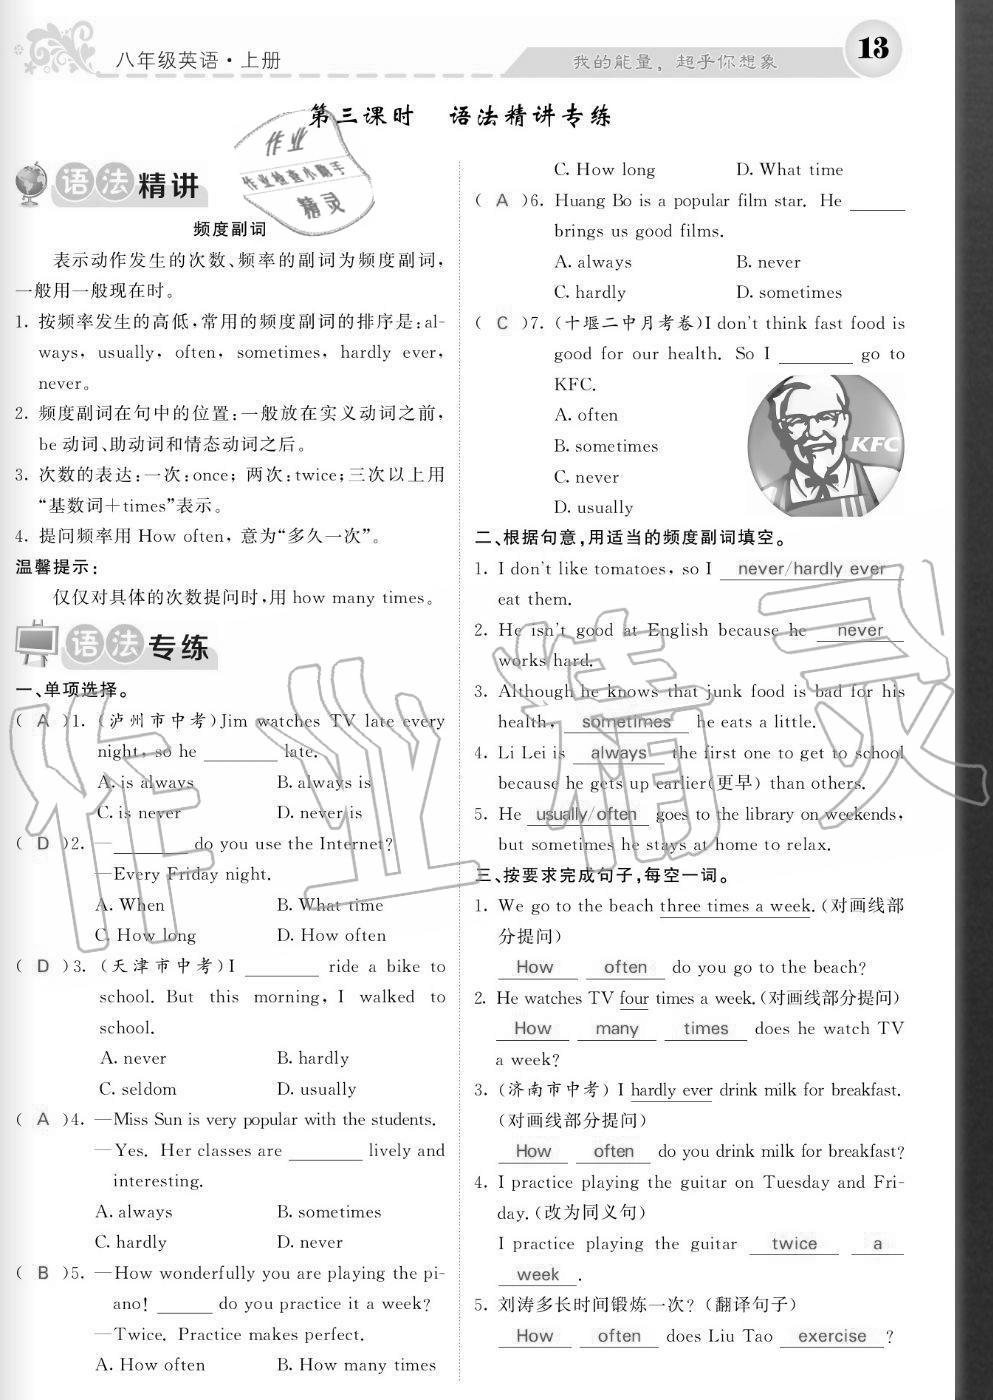 八年级英语·上册
我的能量，超乎你想象
13
第三课时 语法精讲专练
作业
作业检查小助手
精灵
语法精讲
频度副词
表示动作发生的次数、频率的副词为频度副词，
一般用一般现在时。
1. 按频率发生的高低，常用的频度副词的排序是：al-
ways, usually, often, sometimes, hardly ever,
never。
2. 频度副词在句中的位置：一般放在实义动词之前，
be 动词、助动词和情态动词之后。
3. 次数的表达：一次：once；两次：twice；三次以上用
“基数词＋times”表示。
4. 提问频率用 How often，意为“多久一次”。
温馨提示：
仅仅对具体的次数提问时，用 how many times。
语法专练
一、单项选择。
( A )1. (泸州市中考)Jim watches TV late every
night, so he ______ late.
A. is always B. always is
C. is never D. never is
( D )2. —______ do you use the Internet?
—Every Friday night.
A. When B. What time
C. How long D. How often
( D )3. (天津市中考)I ______ ride a bike to
school. But this morning, I walked to
school.
A. never B. hardly
C. seldom D. usually
( A )4. —Miss Sun is very popular with the students.
—Yes. Her classes are ______ lively and
interesting.
A. always B. sometimes
C. hardly D. never
( B )5. —How wonderfully you are playing the pi-
ano! _____ do you practice it a week?
—Twice. Practice makes perfect.
A. How often B. How many times
C. How long D. What time
( A )6. Huang Bo is a popular film star. He _____
brings us good films.
A. always B. never
C. hardly D. sometimes
( C )7. (十堰二中月考卷)I don't think fast food is
good for our health. So I ______ go to
KFC.
A. often
B. sometimes
C. never
D. usually
KFC
二、根据句意，用适当的频度副词填空。
1. I don't like tomatoes, so I never/hardly ever
eat them.
2. He isn't good at English because he never
works hard.
3. Although he knows that junk food is bad for his
health, sometimes he eats a little.
4. Li Lei is always the first one to get to school
because he gets up earlier(更早) than others.
5. He usually/often goes to the library on weekends,
but sometimes he stays at home to relax.
三、按要求完成句子，每空一词。
1. We go to the beach three times a week. (对画线部
分提问)
How often do you go to the beach?
2. He watches TV four times a week. (对画线部分提问)
How many times does he watch TV
a week?
3. (济南市中考) I hardly ever drink milk for breakfast.
(对画线部分提问)
How often do you drink milk for breakfast?
4. I practice playing the guitar on Tuesday and Fri-
day. (改为同义句)
I practice playing the guitar twice a
week.
5. 刘涛多长时间锻炼一次？(翻译句子)
How often does Liu Tao exercise ?
作业精灵